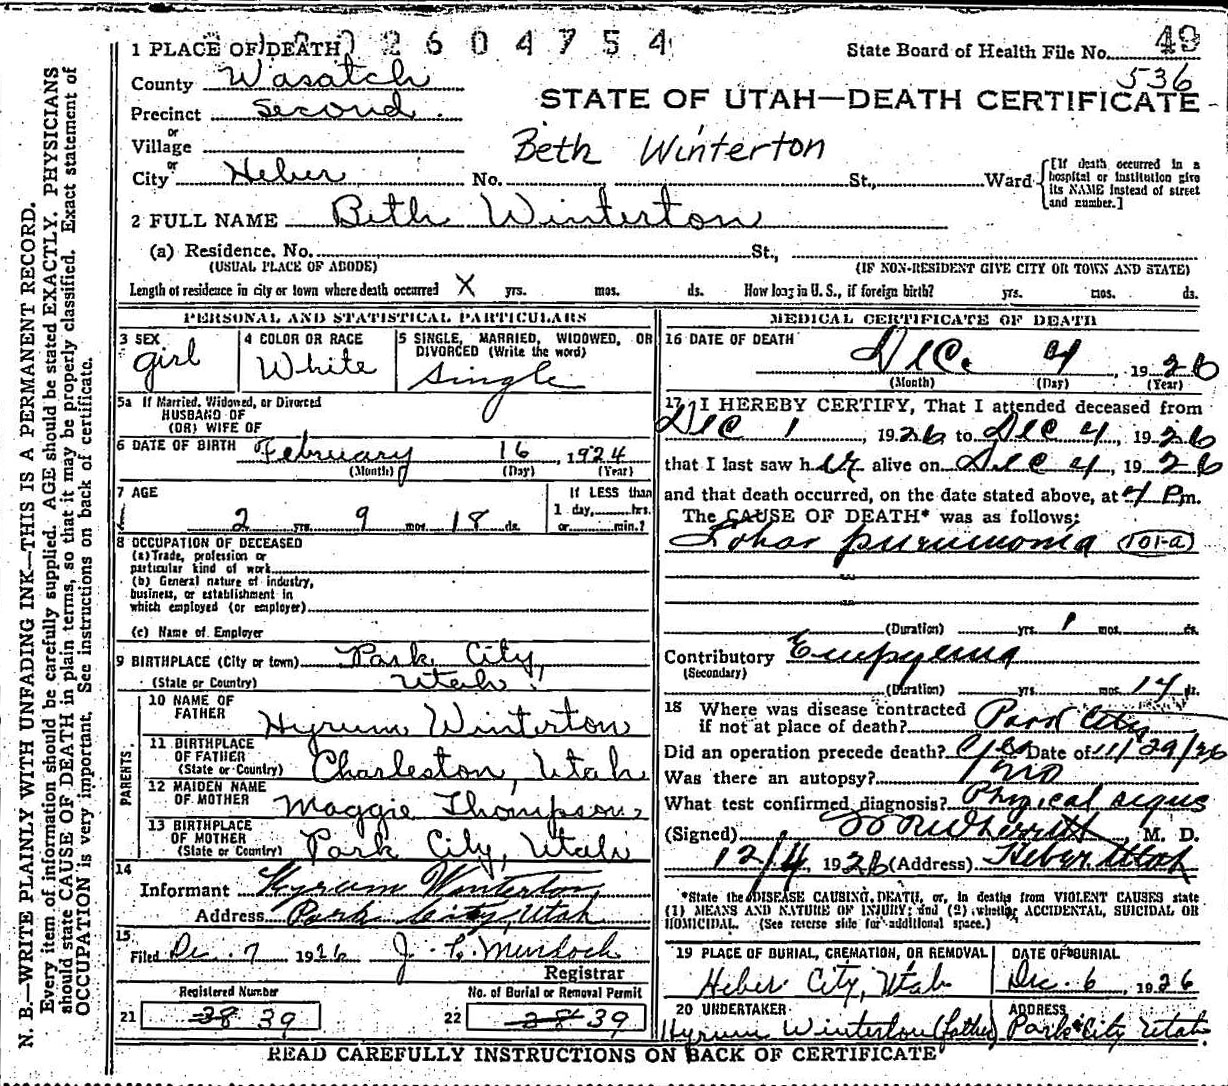 N. B.—WRITE PLAINLY WITH UNFADING INK—THIS IS A PERMANENT RECORD.
Every item of information should be carefully supplied. AGE should be stated EXACTLY. PHYSICIANS
should state CAUSE OF DEATH in plain terms, so that it may be properly classified. Exact statement of
OCCUPATION is very important. See instructions on back of certificate.
2604754
1 PLACE OF DEATH
State Board of Health File No. 49
536
County Wasatch
STATE OF UTAH—DEATH CERTIFICATE
Precinct Second
or
Village
Beth Winterton
or
City Heber No. St., Ward
[If death occurred in a
hospital or institution give
its NAME instead of street
and number.]
2 FULL NAME Beth Winterton
(a) Residence. No. St.,
(USUAL PLACE OF ABODE) (IF NON-RESIDENT GIVE CITY OR TOWN AND STATE)
Length of residence in city or town where death occurred X yrs. mos. ds. How long in U. S., if foreign birth? yrs. mos. ds.
PERSONAL AND STATISTICAL PARTICULARS
3 SEX
girl
4 COLOR OR RACE
White
5 SINGLE, MARRIED, WIDOWED, OR
DIVORCED (Write the word)
Single
5a If Married, Widowed, or Divorced
HUSBAND OF
(OR) WIFE OF
6 DATE OF BIRTH February 16, 1924
(Month) (Day) (Year)
7 AGE
2 yrs. 9 mos. 18 ds.
If LESS than
1 day, hrs.
or min.?
8 OCCUPATION OF DECEASED
(a) Trade, profession or
particular kind of work
(b) General nature of industry,
business, or establishment in
which employed (or employer)
(c) Name of Employer
9 BIRTHPLACE (City or town) Park City,
(State or Country) Utah.
PARENTS.
10 NAME OF
FATHER Hyrum Winterton
11 BIRTHPLACE
OF FATHER
(State or Country) Charleston, Utah
12 MAIDEN NAME
OF MOTHER Maggie Thompson,
13 BIRTHPLACE
OF MOTHER
(State or Country) Park City, Utah
14
Informant Hyrum Winterton
Address Park City, Utah
15
Filed Dec. 7 1926 J. Murdoch
Registrar
Registered Number No. of Burial or Removal Permit
21 38 39 22 38 39
MEDICAL CERTIFICATE OF DEATH
16 DATE OF DEATH
Dec. 4, 1926
(Month) (Day) (Year)
17 I HEREBY CERTIFY, That I attended deceased from
Dec 1, 1926 to Dec 4, 1926
that I last saw her alive on Dec 4, 1926
and that death occurred, on the date stated above, at 4 P.m.
The CAUSE OF DEATH* was as follows:
Lobar pneumonia 101-a
(Duration) yrs. 1 mos. ds.
Contributory Empyema
(Secondary)
(Duration) yrs. mos. 14 ds.
18 Where was disease contracted
if not at place of death? Park City
Did an operation precede death? yes Date of 11/29/26
Was there an autopsy? no
What test confirmed diagnosis? Physical signs
(Signed) Wherritt, M. D.
12/4, 1926 (Address) Heber Utah
*State the DISEASE CAUSING DEATH, or, in deaths from VIOLENT CAUSES state
(1) MEANS AND NATURE OF INJURY; and (2) whether ACCIDENTAL, SUICIDAL OR
HOMICIDAL. (See reverse side for additional space.)
19 PLACE OF BURIAL, CREMATION, OR REMOVAL
Heber City, Utah
DATE OF BURIAL
Dec. 6, 1926
20 UNDERTAKER
Hyrum Winterton (father)
ADDRESS
Park City Utah
READ CAREFULLY INSTRUCTIONS ON BACK OF CERTIFICATE